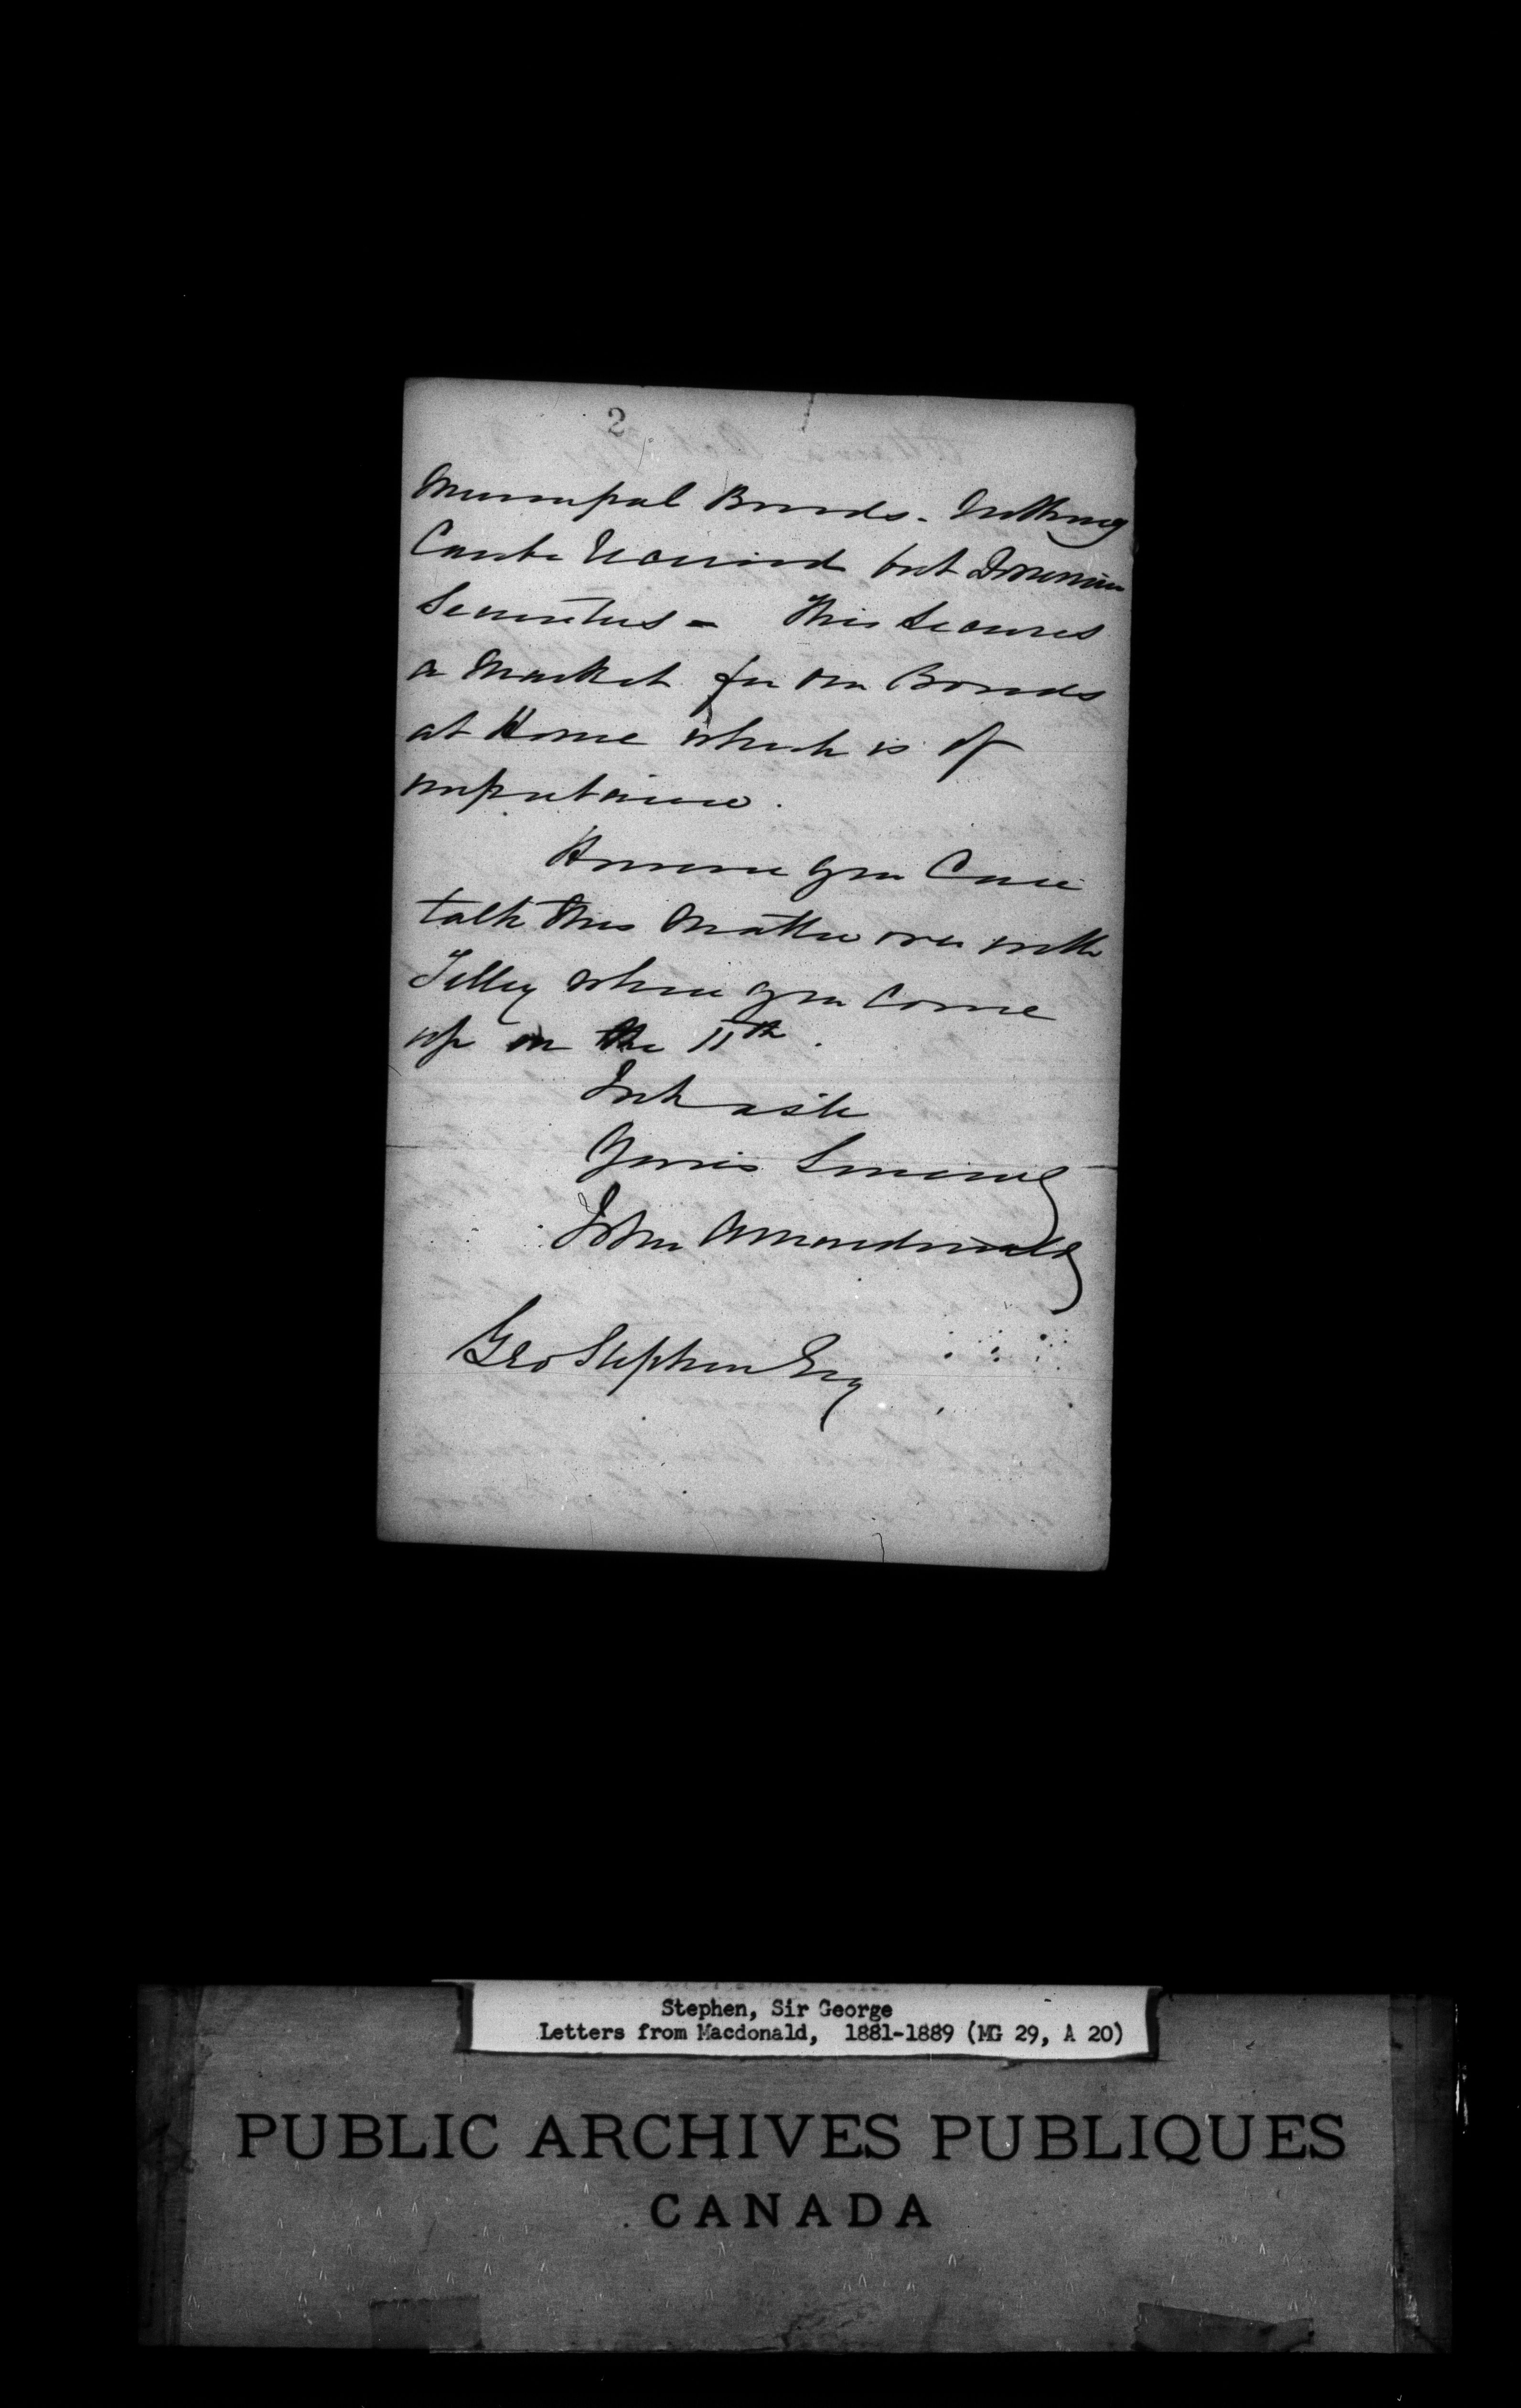 2
Municipal Bonds. Nothing
Can be received but Dominion
Securities - This secures
a Market for our Bonds
at Home which is of
importance.
However you can
talk this matter over with
Tilley when you come
up on the 11th.
In haste
Yours Sincerely
John A Macdonald
Geo Stephen Esq
Stephen, Sir George
Letters from Macdonald, 1881-1889 (MG 29, A 20)
PUBLIC ARCHIVES PUBLIQUES
CANADA